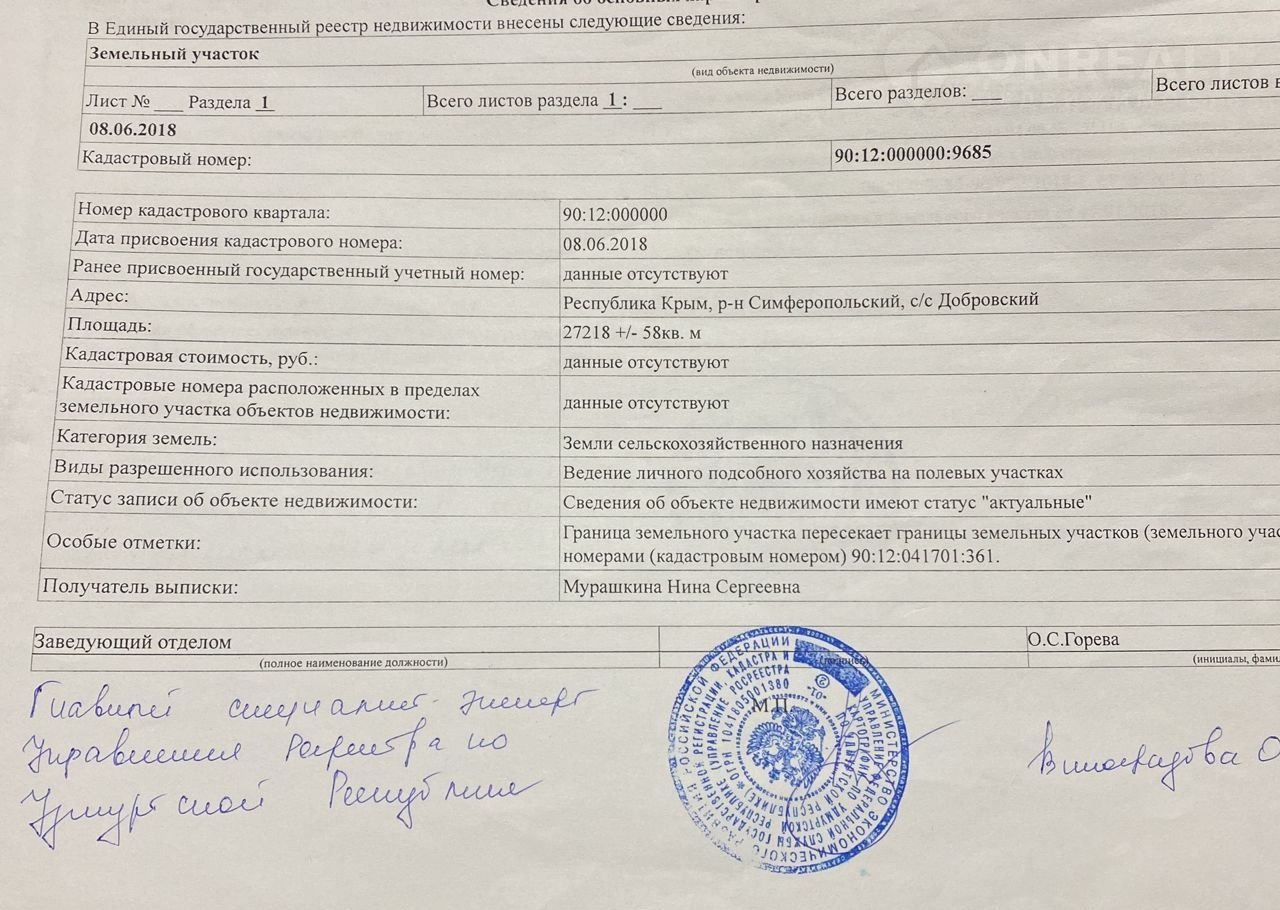 В Единый государственный реестр недвижимости внесены следующие сведения:
Земельный участок
(вид объекта недвижимости)
Лист № ___ Раздела 1 Всего листов раздела 1 : ___ Всего разделов: ___ Всего листов в
08.06.2018
Кадастровый номер: 90:12:000000:9685
Номер кадастрового квартала: 90:12:000000
Дата присвоения кадастрового номера: 08.06.2018
Ранее присвоенный государственный учетный номер: данные отсутствуют
Адрес: Республика Крым, р-н Симферопольский, с/с Добровский
Площадь: 27218 +/- 58кв. м
Кадастровая стоимость, руб.: данные отсутствуют
Кадастровые номера расположенных в пределах
земельного участка объектов недвижимости: данные отсутствуют
Категория земель: Земли сельскохозяйственного назначения
Виды разрешенного использования: Ведение личного подсобного хозяйства на полевых участках
Статус записи об объекте недвижимости: Сведения об объекте недвижимости имеют статус "актуальные"
Особые отметки: Граница земельного участка пересекает границы земельных участков (земельного учас
номерами (кадастровым номером) 90:12:041701:361.
Получатель выписки: Мурашкина Нина Сергеевна
Заведующий отделом О.С.Горева
(полное наименование должности) (инициалы, фами
М.П.
Главный специалист-эксперт
Управления Росреестра по
Удмуртской Республике
Виноградова О
МИНИСТЕРСТВО ЭКОНОМИЧЕСКОГО РАЗВИТИЯ РОССИЙСКОЙ ФЕДЕРАЦИИ
УПРАВЛЕНИЕ ФЕДЕРАЛЬНОЙ СЛУЖБЫ ГОСУДАРСТВЕННОЙ РЕГИСТРАЦИИ, КАДАСТРА И
КАРТОГРАФИИ ПО УДМУРТСКОЙ РЕСПУБЛИКЕ (УПРАВЛЕНИЕ РОСРЕЕСТРА
ПО УДМУРТСКОЙ РЕСПУБЛИКЕ) * ОГРН 1041805001380
ONREALT